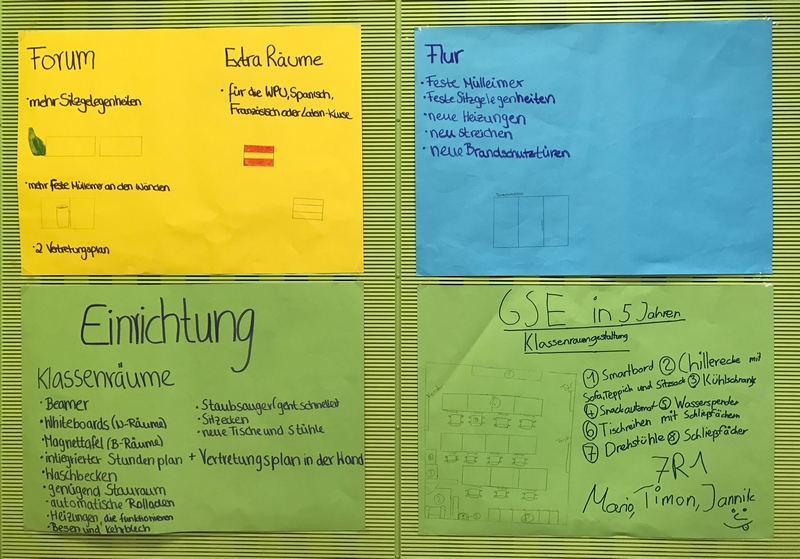 Forum
•mehr Sitzgelegenheiten
•mehr feste Mülleimer an den Wänden
•2 Vertretungsplan
Extra Räume
• für die WPU, Spanisch,
Französisch oder Latein-Kurse
Flur
•Feste Mülleimer
•Feste Sitzgelegenheiten
•neue Heizungen
•neu streichen
•neue Brandschutztüren
Einrichtung
Klassenräume
•Beamer
•Whiteboards (N-Räume)
•Magnettafel (B-Räume)
•intigrierter Stundenplan + Vertretungsplan in der Wand
•Waschbecken
•genügend Stauraum
•automatische Rolladen
•Heizungen, die funktionieren
•Besen und Kehrblech
•Staubsauger (geht schneller)
•Sitzecken
•neue Tische und Stühle
GSE in 5 Jahren
Klassenraumgestaltung
① Smartbord ② Chillerecke mit
Sofa, Teppich und Sitzsack ③ Kühlschrank
④ Snackautomat ⑤ Wasserspender
⑥ Tischreihen mit Schliepfächern
⑦ Drehstühle ⑧ Schliepfächer
7R1
Mario, Timon, Jannik